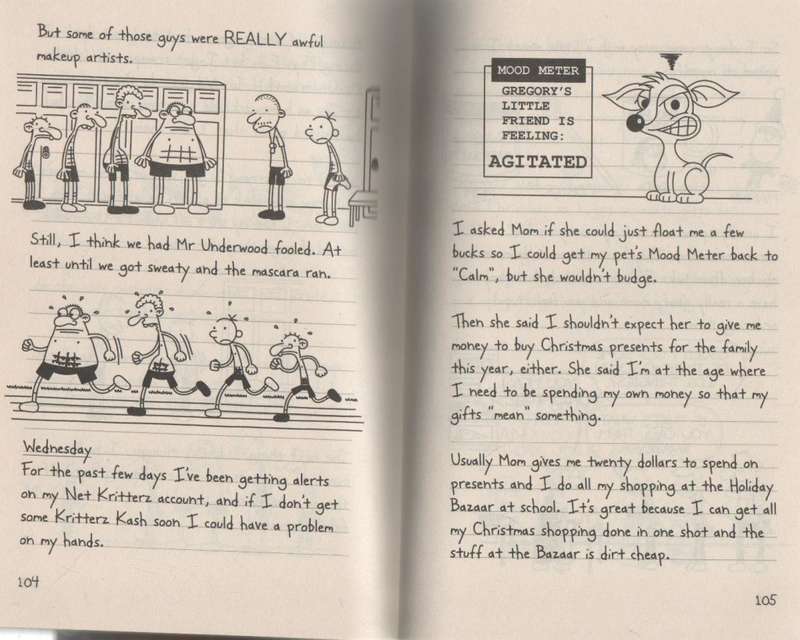 But some of those guys were REALLY awful
makeup artists.
Still, I think we had Mr Underwood fooled. At
least until we got sweaty and the mascara ran.
Wednesday
For the past few days I've been getting alerts
on my Net Kritterz account, and if I don't get
some Kritterz Kash soon I could have a problem
on my hands.
104
MOOD METER
GREGORY'S
LITTLE
FRIEND IS
FEELING:
AGITATED
I asked Mom if she could just float me a few
bucks so I could get my pet's Mood Meter back to
"Calm", but she wouldn't budge.
Then she said I shouldn't expect her to give me
money to buy Christmas presents for the family
this year, either. She said I'm at the age where
I need to be spending my own money so that my
gifts "mean" something.
Usually Mom gives me twenty dollars to spend on
presents and I do all my shopping at the Holiday
Bazaar at school. It's great because I can get all
my Christmas shopping done in one shot and the
stuff at the Bazaar is dirt cheap.
105